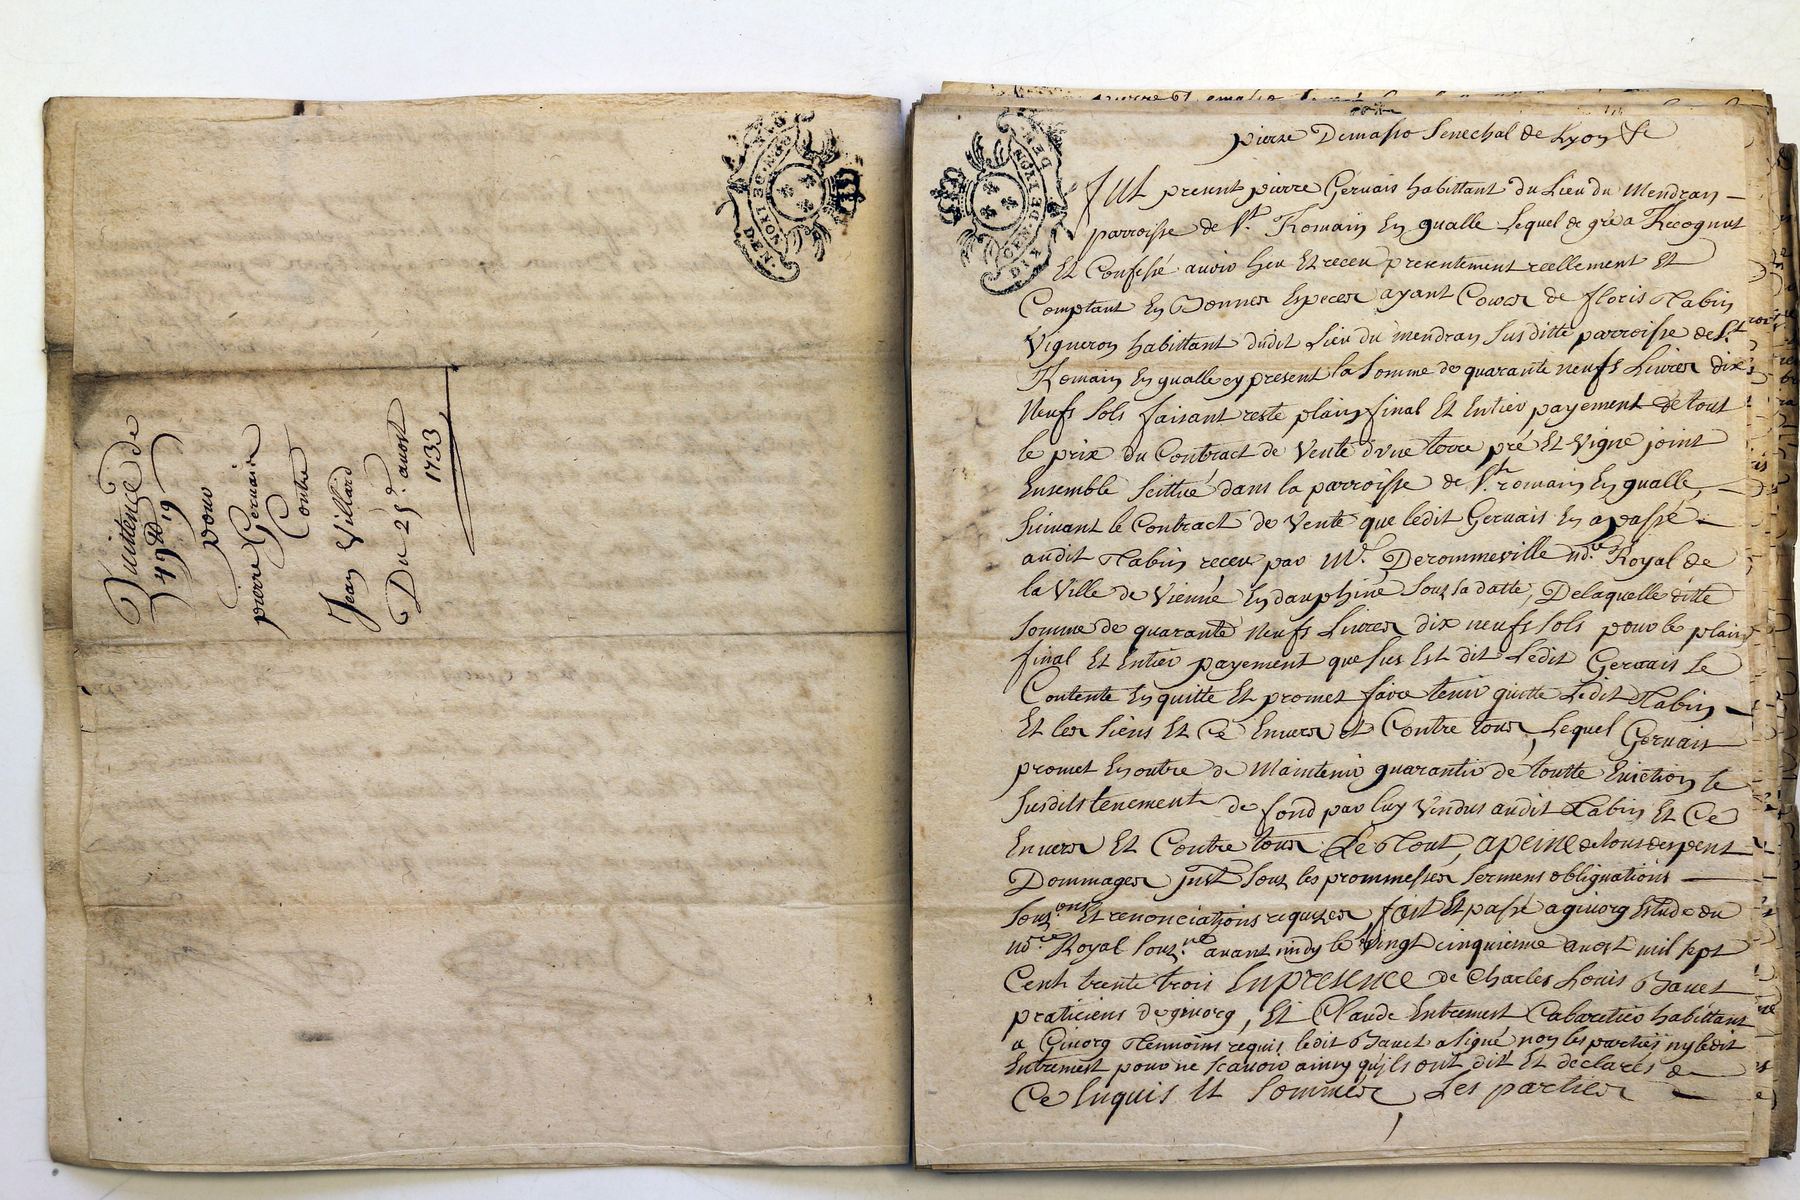 Quittence de
49tt 19s
pour
pierre Gervais
Contre
Jean Villard
Du 25e. aoust
1733
GEN. DE LYON
DIX DEN.
GEN. DE LYON
DIX DEN.
pierre Demasso senechal de Lyon &c
Fut present pierre Gervais habittant du Lieu du Mendran
parroisse de St. Romain En gualle Lequel de gré a Recognut
Et Confessé avoir heu Et receu presentement reellement Et
Comptant En Bonnes Especes ayant Cours de floris Nabin
Vigneron habittant dudit Lieu du mendran susditte parroisse de St.
Romain En gualle cy present la somme de quarante neufs Livres dix
Neufs sols faisant reste plain final Et Entier payement de tout
le prix du Contract de Vente d'une terre pré Et Vigne joint
Ensemble scittué dans la parroisse de St. romain En gualle
suivant le Contract de Vente que ledit Gervais En a passé
audit Nabin receu par Me. Derommeville nore. Royal de
la Ville de Vienne En dauphiné sous sa datte, De laquelle ditte
somme de quarante Neufs Livres dix neufs sols pour le plain
final Et Entier payement que sus Est dit Ledit Gervais se
Contente En quitte Et promet faire tenir quitte Ledit Nabin
Et les siens Et Ce Envers et Contre tous, Lequel Gervais
promet En outre de Maintenir guarantir de toutte Eviction le
susdits tenement de fond par luy Vendus audit Nabin Et Ce
Envers Et Contre tous Le Tout, a peine de tous despens
Dommages just sous les prommesses sermens obliguations
sous.ons Et renonciations requises fait Et passé a givorg Estude du
nore. Royal souz.né avant midy le Vingt cinquieme aoust mil sept
Cent trente trois En presence de Charles Louis Bavet
praticiens de givorg, Et Claude Entremest Cabaretier habittant
a Givorg Temoins requis ledit Bavet a signé non les parties ny ledit
Entremest pour ne scavoir ainsy qu'ils ont dit Et declarés de
Ce Enquis Et sommés Les parties